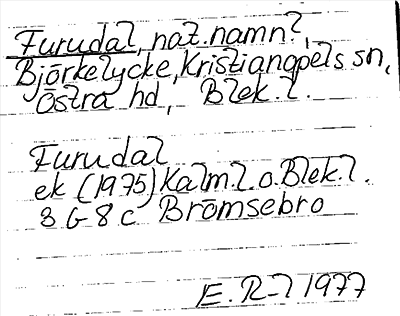 Furudal, nat.namn?,
Björkelycke, Kristianopels sn,
Östra hd, Blek.l.
Furudal
ek (1975) Kalm.l. o. Blek.l.
3 G 8 c Brömsebro
E. R-l 1977